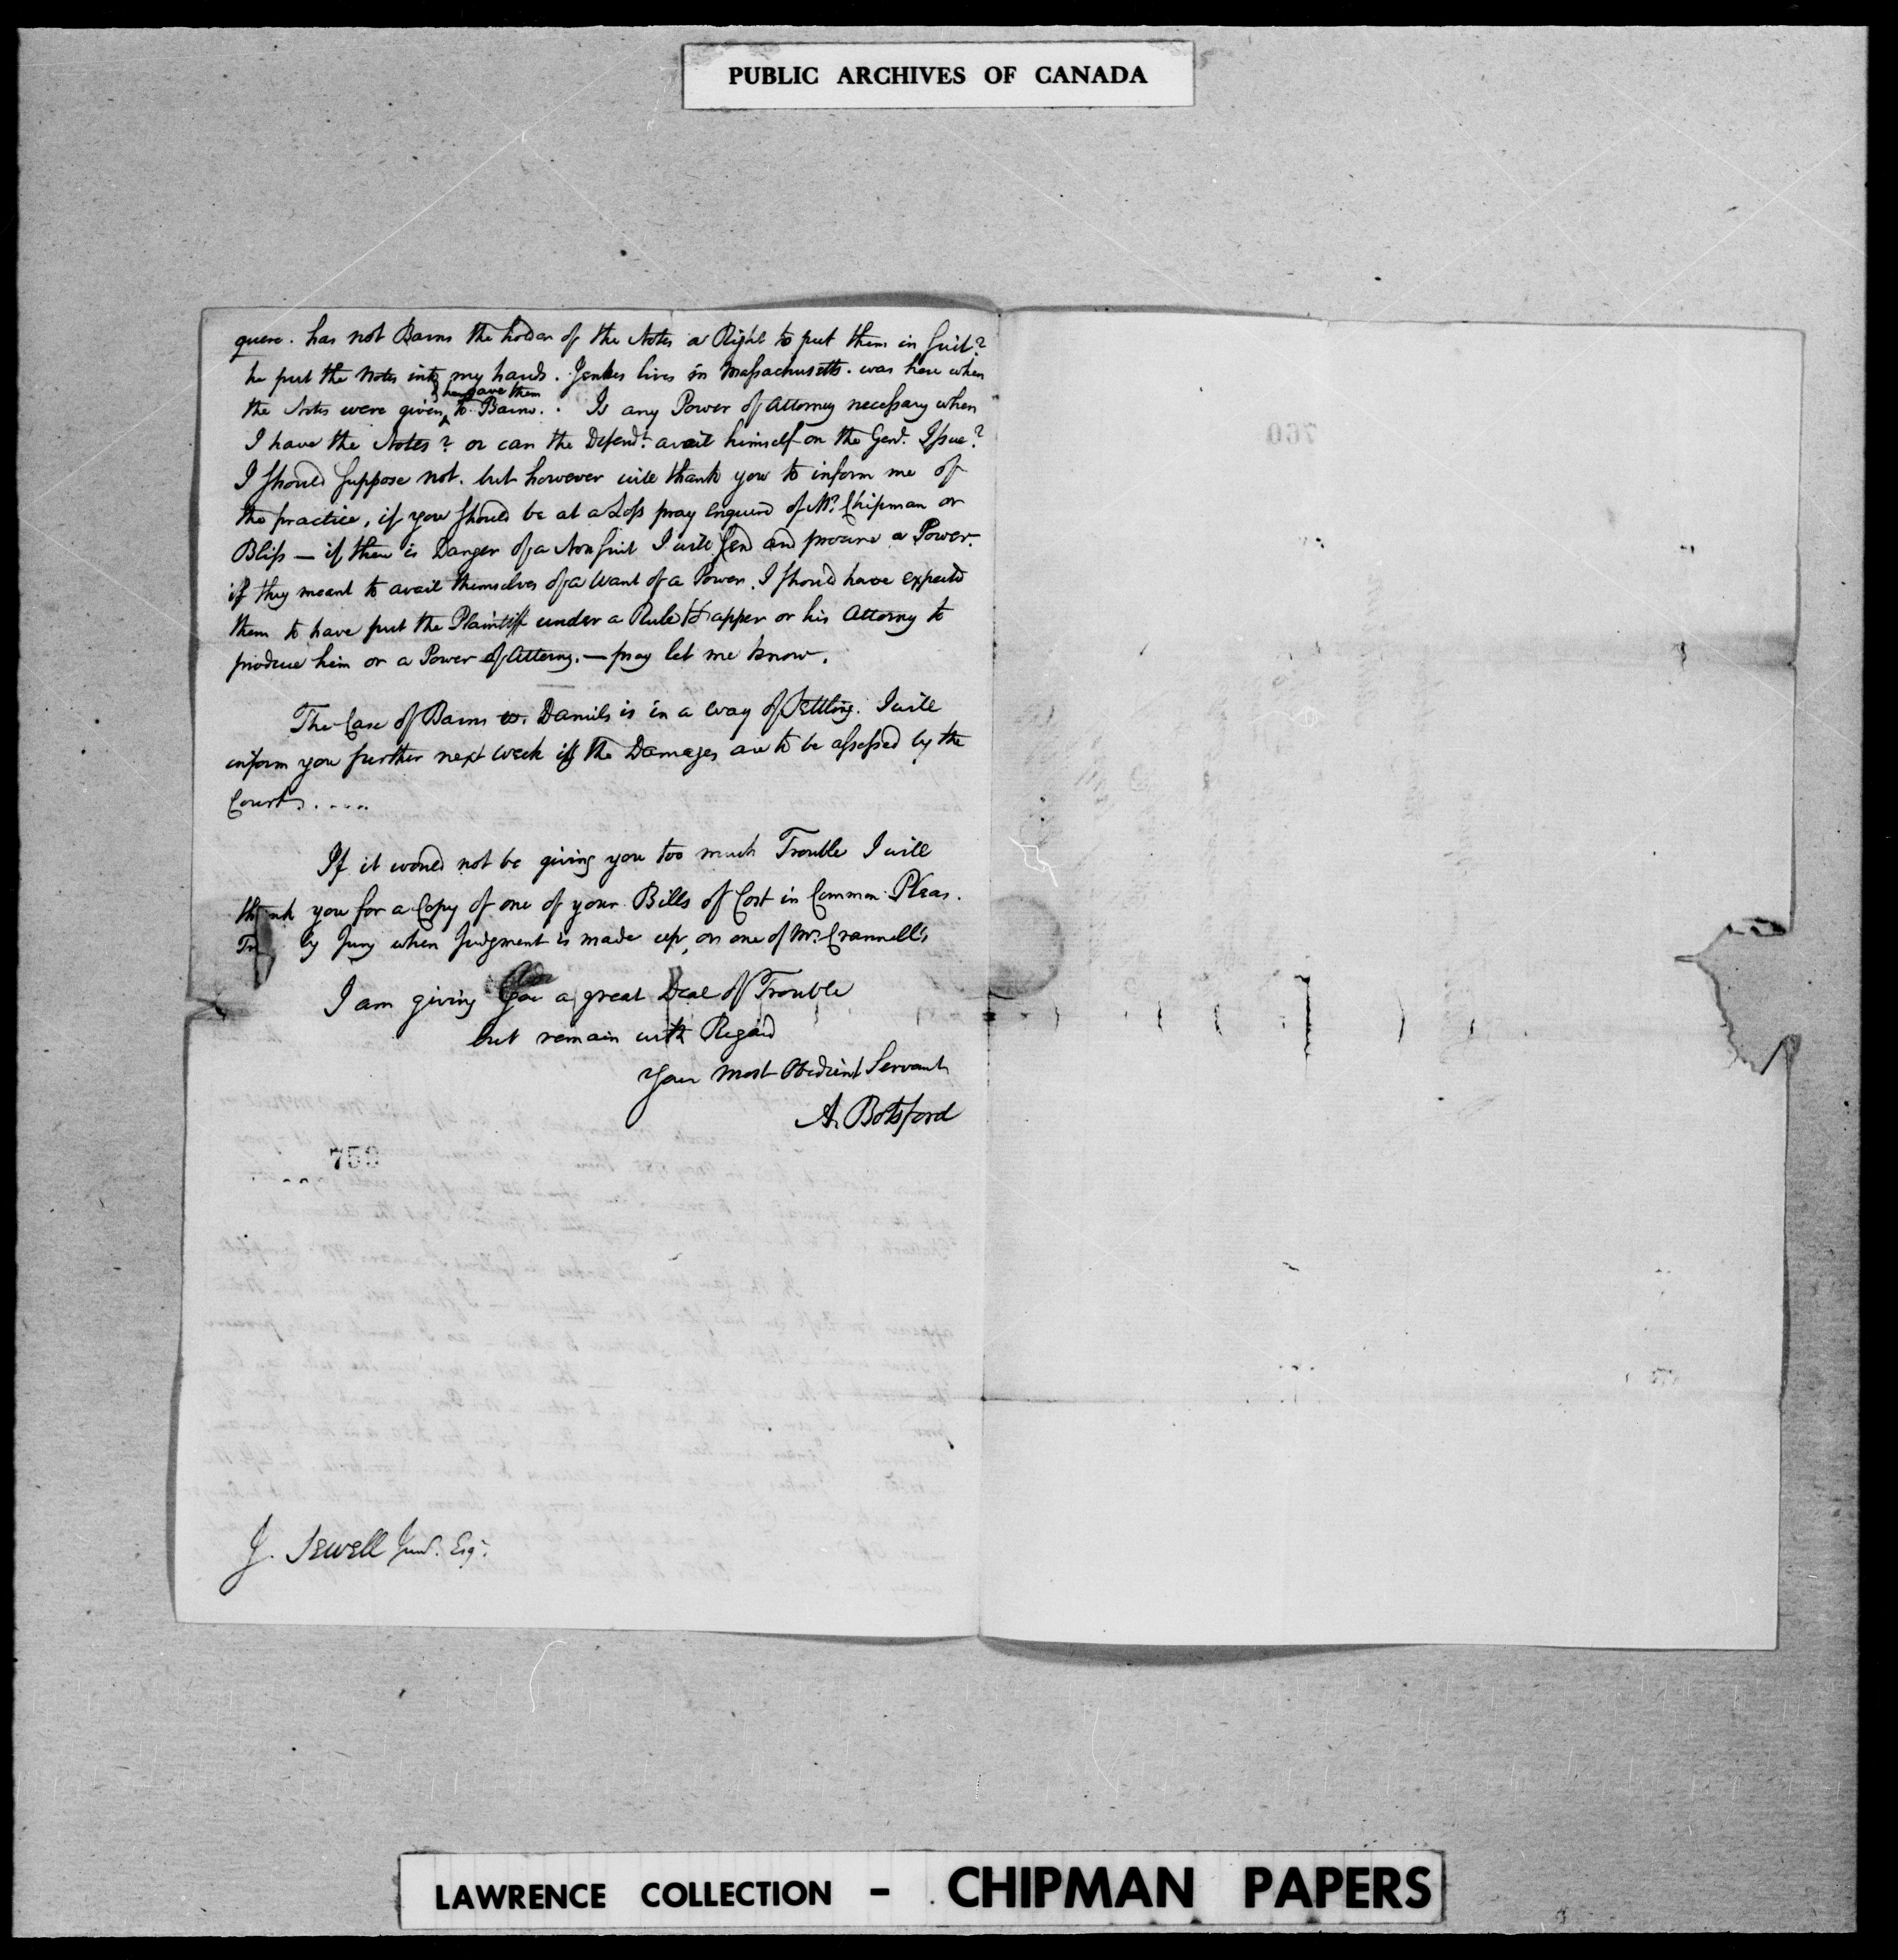 PUBLIC ARCHIVES OF CANADA
quere. has not Barns the holder of the Notes a Right to put them in Suit?
he put the Notes into my hands. Jenkes lives in Massachusetts. was here when
& he gave them
the Notes were given to Barns. Is any Power of Attorney necessary when
I have the Notes? or can the Defendt. avail himself on the Genl. Issue?
I should suppose not. but however will thank you to inform me of
the practice, if you should be at a Loss pray enquire of Mr. Chipman or
Bliss — if there is Danger of a Nonsuit I will send and procure a Power.
if they meant to avail themselves of a Want of a Power, I should have expected
them to have put the Plaintiff under a Rule to apper or his Attorny to
produce him or a Power of Attorny. — pray let me know.
The Case of Barns vs. Daniels is in a way of Settling. I will
inform you further next week if the Damages are to be assessed by the
Court.....
If it would not be giving you too much Trouble I will
thank you for a Copy of one of your Bills of Cost in Common Pleas.
by Jury when Judgment is made up, or one of Mr. Crannell's
I am giving you a great Deal of Trouble
but remain with Regard
Your most Obedient Servant
A. Botsford
759
J. Sewell Junr. Esqr.
760
LAWRENCE COLLECTION - CHIPMAN PAPERS